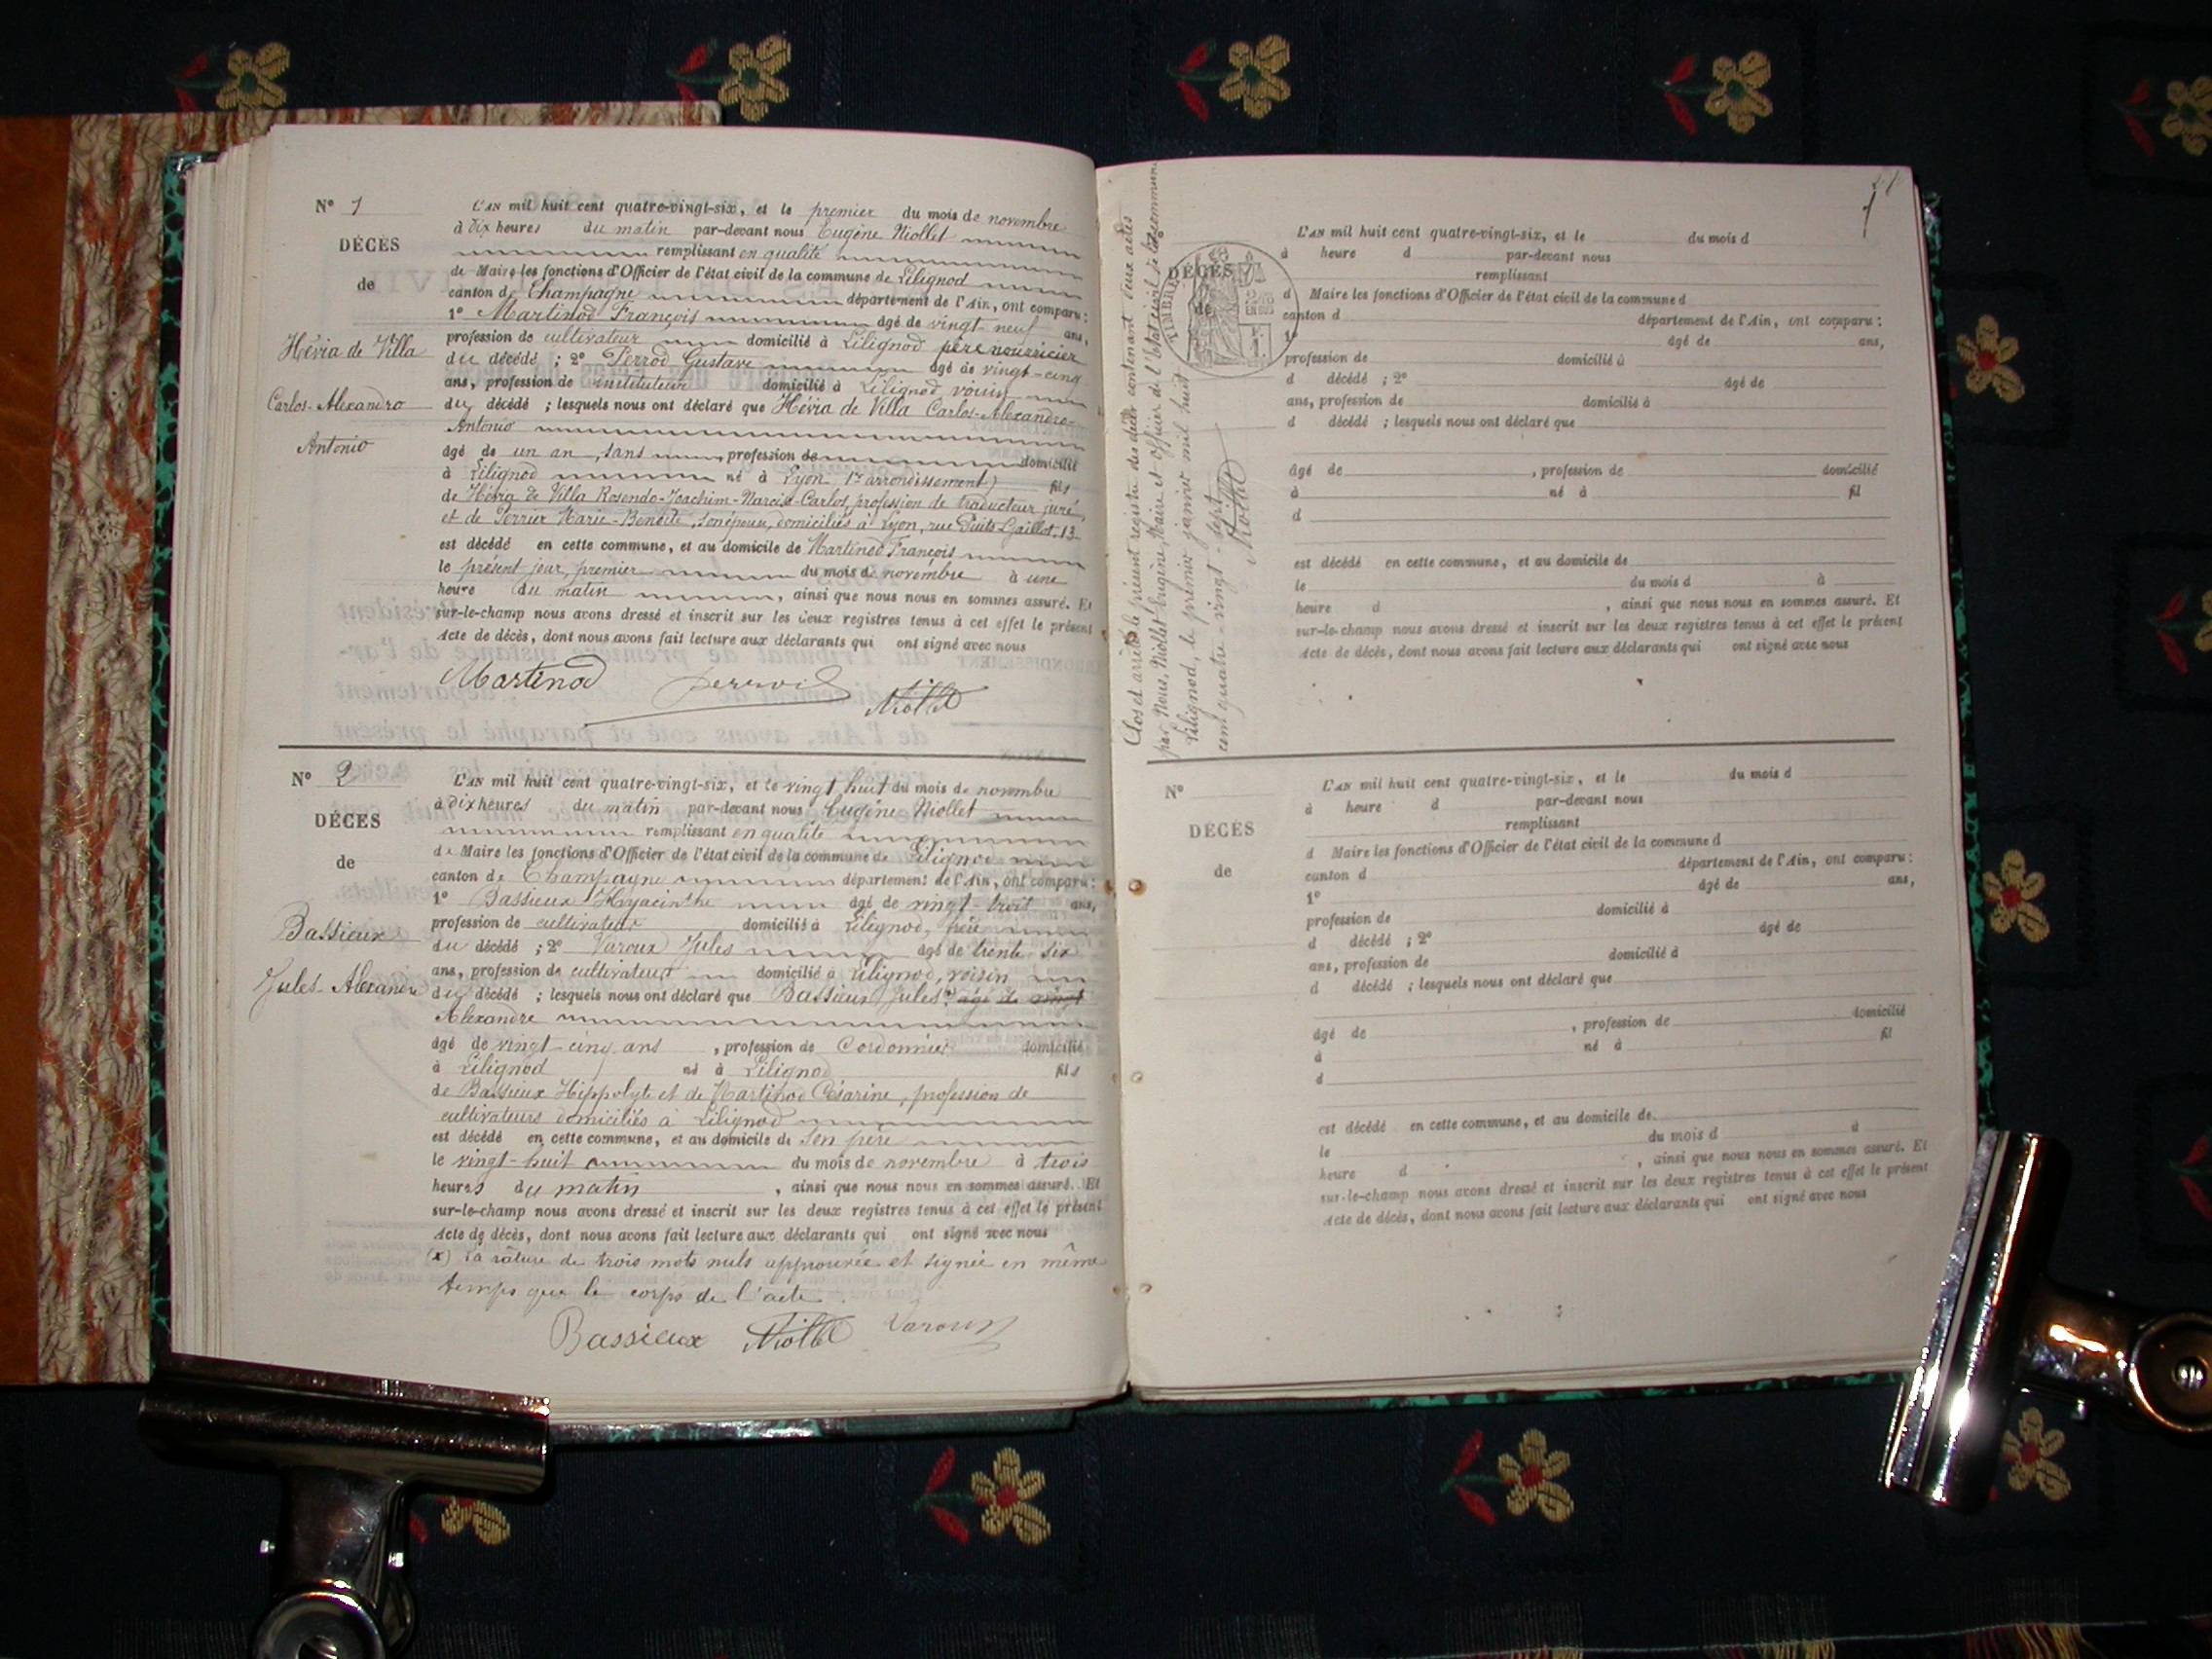 N° 1
DÉCÈS
de
Hévia de Villa
Carlos-Alexandro
Antonio
L'AN mil huit cent quatre-vingt-six, et le premier du mois de novembre
à dix heures du matin par-devant nous Eugène Niollet
remplissant en qualité
de Maire les fonctions d'Officier de l'état civil de la commune de Lilignod
canton de Champagne département de l'Ain, ont comparu :
1° Martinod François âgé de vingt-neuf ans,
profession de cultivateur domicilié à Lilignod père nourricier
du décédé ; 2° Perrod Gustave âgé de vingt-cinq
ans, profession de instituteur domicilié à Lilignod voisin
du décédé ; lesquels nous ont déclaré que Hévia de Villa Carlos-Alexandro-
Antonio
âgé de un an, sans profession de domicilié
à Lilignod né à Lyon 1er arrondissement) fils
de Hévia de Villa Rosendo-Joachim-Narcis-Carlos, profession de traducteur juré,
et de Perrier Marie-Benoîte, son épouse, domiciliés à Lyon, rue Puits-Gaillot, 13
est décédé en cette commune, et au domicile de Martinod François
le présent jour, premier du mois de novembre à une
heure du matin , ainsi que nous nous en sommes assuré. Et
sur-le-champ nous avons dressé et inscrit sur les deux registres tenus à cet effet le présent
Acte de décès, dont nous avons fait lecture aux déclarants qui ont signé avec nous
Martinod Perrod Niollet
N° 2
DÉCÈS
de
Bassieux
Jules-Alexandre
L'AN mil huit cent quatre-vingt-six, et le vingt huit du mois de novembre
à dix heures du matin par-devant nous Eugène Niollet
remplissant en qualité
de Maire les fonctions d'Officier de l'état civil de la commune de Lilignod
canton de Champagne département de l'Ain, ont comparu :
1° Bassieux Hyacinthe âgé de vingt-trois ans,
profession de cultivateur domicilié à Lilignod, frère
du décédé ; 2° Varoux Jules âgé de trente six
ans, profession de cultivateur domicilié à Lilignod, voisin
du décédé ; lesquels nous ont déclaré que Bassieux Jules- âgé de vingt
Alexandre
âgé de vingt-cinq ans , profession de Cordonnier domicilié
à Lilignod né à Lilignod fils
de Bassieux Hippolyte et de Martinod Césarine, profession de
cultivateurs domiciliés à Lilignod
est décédé en cette commune, et au domicile de son père
le vingt-huit du mois de novembre à trois
heures du matin , ainsi que nous nous en sommes assuré. Et
sur-le-champ nous avons dressé et inscrit sur les deux registres tenus à cet effet le présent
Acte de décès, dont nous avons fait lecture aux déclarants qui ont signé avec nous
(x) La râture de trois mots nuls approuvée et signée en même
temps que le corps de l'acte.
Bassieux Niollet Varoux
Clos et arrêté le présent registre des décès contenant deux actes
par Nous, Niollet Eugène, Maire et officier de l'état civil de la commune
Lilignod, le premier janvier mil huit
cent quatre-vingt-sept
Niollet
TIMBRE
DÉCÈS
de
L'AN mil huit cent quatre-vingt-six, et le du mois d
à heure d par-devant nous
remplissant
d Maire les fonctions d'Officier de l'état civil de la commune d
canton d département de l'Ain, ont comparu :
1° âgé de ans,
profession de domicilié à
d décédé ; 2° âgé de
ans, profession de domicilié à
d décédé ; lesquels nous ont déclaré que
âgé de , profession de domicilié
à né à fil
d
est décédé en cette commune, et au domicile de
le du mois d à
heure d , ainsi que nous nous en sommes assuré. Et
sur-le-champ nous avons dressé et inscrit sur les deux registres tenus à cet effet le présent
Acte de décès, dont nous avons fait lecture aux déclarants qui ont signé avec nous
N°
DÉCÈS
de
L'AN mil huit cent quatre-vingt-six, et le du mois d
à heure d par-devant nous
remplissant
d Maire les fonctions d'Officier de l'état civil de la commune d
canton d département de l'Ain, ont comparu :
1° âgé de ans,
profession de domicilié à
d décédé ; 2° âgé de
ans, profession de domicilié à
d décédé ; lesquels nous ont déclaré que
âgé de , profession de domicilié
à né à fil
d
est décédé en cette commune, et au domicile de
le du mois d à
heure d , ainsi que nous nous en sommes assuré. Et
sur-le-champ nous avons dressé et inscrit sur les deux registres tenus à cet effet le présent
Acte de décès, dont nous avons fait lecture aux déclarants qui ont signé avec nous